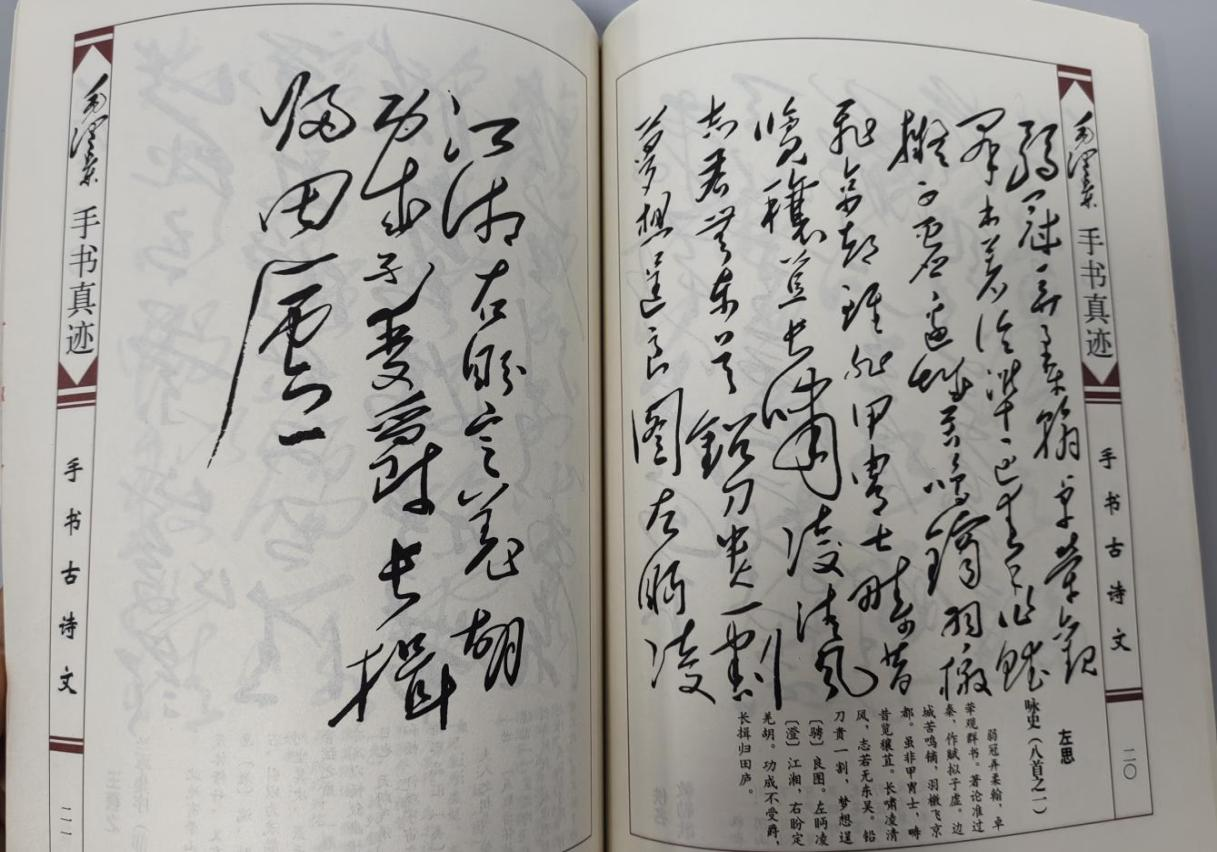 毛泽东 手书真迹
手书古诗文
二〇
弱冠弄柔翰卓犖觀
羣書著論準過秦作賦
擬子虛邊城苦鳴鏑羽檄
飛京都雖非甲胄士疇昔
覽穰苴長嘯凌清風
志若無東吳鉛刀貴一割
夢想逞良圖左眄凌
左思
咏史（八首之一）
弱冠弄柔翰，卓
荦观群书。著论准过
秦，作赋拟子虚。边
城苦鸣镝，羽檄飞京
都。虽非甲胄士，畴
昔览穰苴。长啸凌清
风，志若无东吴。铅
刀贵一割，梦想逞
〔骋〕良图。左眄凌
〔澄〕江湘，右盼定
羌胡。功成不受爵，
长揖归田庐。
江湘右盼定羌胡
功成不受爵長揖
歸田廬
毛泽东 手书真迹
手书古诗文
二一